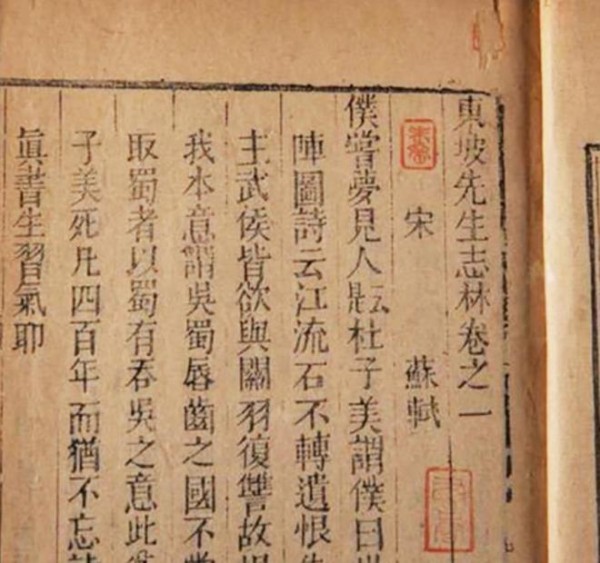 東坡先生志林卷之一
宋 蘇軾
僕嘗夢見人云是杜子美謂僕曰
陣圖詩云江流石不轉遺恨
主武侯皆欲與關羽復讐故
我本意謂吳蜀唇齒之國不
取蜀者以蜀有吞吳之意此
子美死凡四百年而猶不忘
眞書生習氣耶